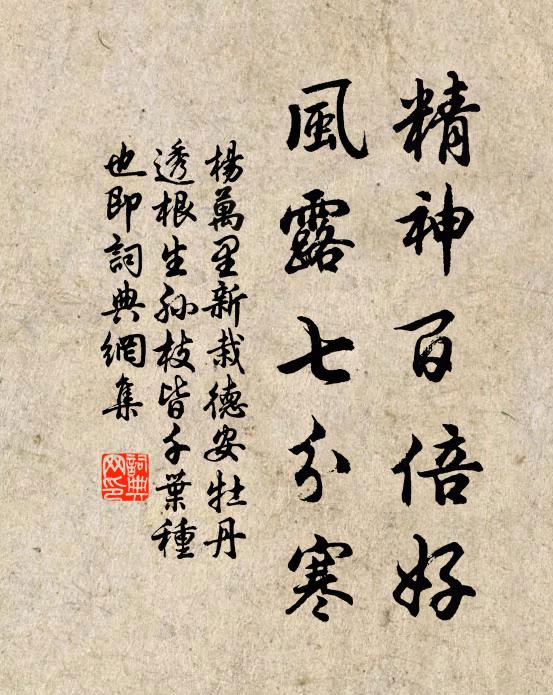 精神百倍好
風露七分寒
楊萬里新栽德安牡丹
透根生孙枝皆千葉種
也即詞典網集
詞典
网印